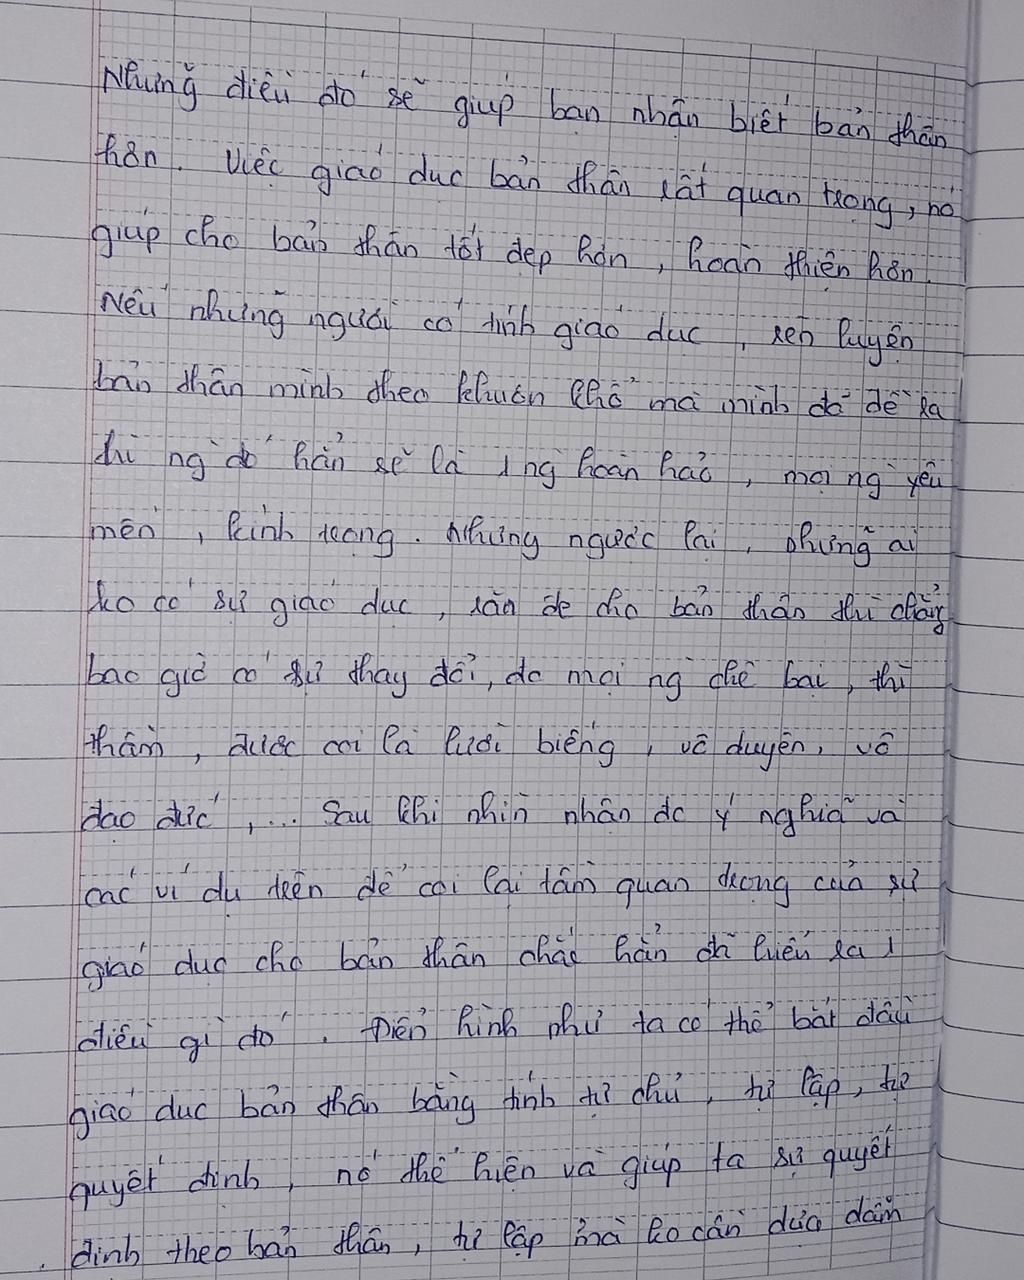 Những điều đó sẽ giúp bạn nhận biết bản thân
hơn. Việc giáo dục bản thân rất quan trọng, nó
giúp cho bản thân tốt đẹp hơn, hoàn thiện hơn.
Nếu những người có tính giáo dục, rèn luyện
bản thân mình theo khuôn khổ mà mình đã đề ra
thì ng đó hẳn sẽ là 1 ng hoàn hảo, mọi ng yêu
mến, kính trọng. Nhưng ngược lại, những ai
ko có sự giáo dục, răn đe cho bản thân thì chẳng
bao giờ có sự thay đổi, dc mọi ng chê bai, thì
thầm, được coi là lười biếng, vô duyên, vô
đạo đức,... Sau khi nhìn nhận dc ý nghĩa và
các ví dụ trên để coi lại tầm quan trọng của sự
giáo dục cho bản thân chắc hẳn đã hiểu ra 1
điều gì đó. Điển hình như ta có thể bắt đầu
giáo dục bản thân bằng tính tự chủ, tự lập, tự
quyết định, nó thể hiện và giúp ta sự quyết
định theo bản thân, tự lập mà ko cần dựa dẫm